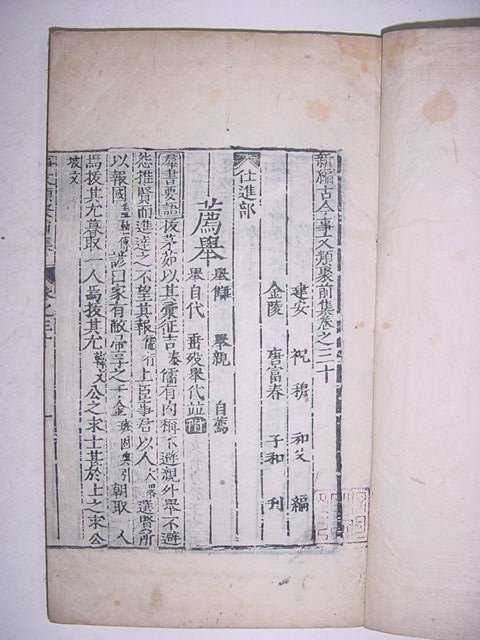 新編古今事文類聚前集卷之三十
建安 祝穆 和父 編
金陵 唐富春 子和 刊
仕進部
薦舉 舉親 自薦
舉自代 垂歿舉代並附
羣書要語 拔茅茹以其彙征吉泰儒有內稱不避親外舉不避
怨推賢而進達之不望其報儒行上臣事君以人大畧進賢所
以報國諺曰家有敝帚享之千金班固典引朝取一人
焉拔其尤暮取一人焉拔其尤韓文公之求士其於上之求公
坡文